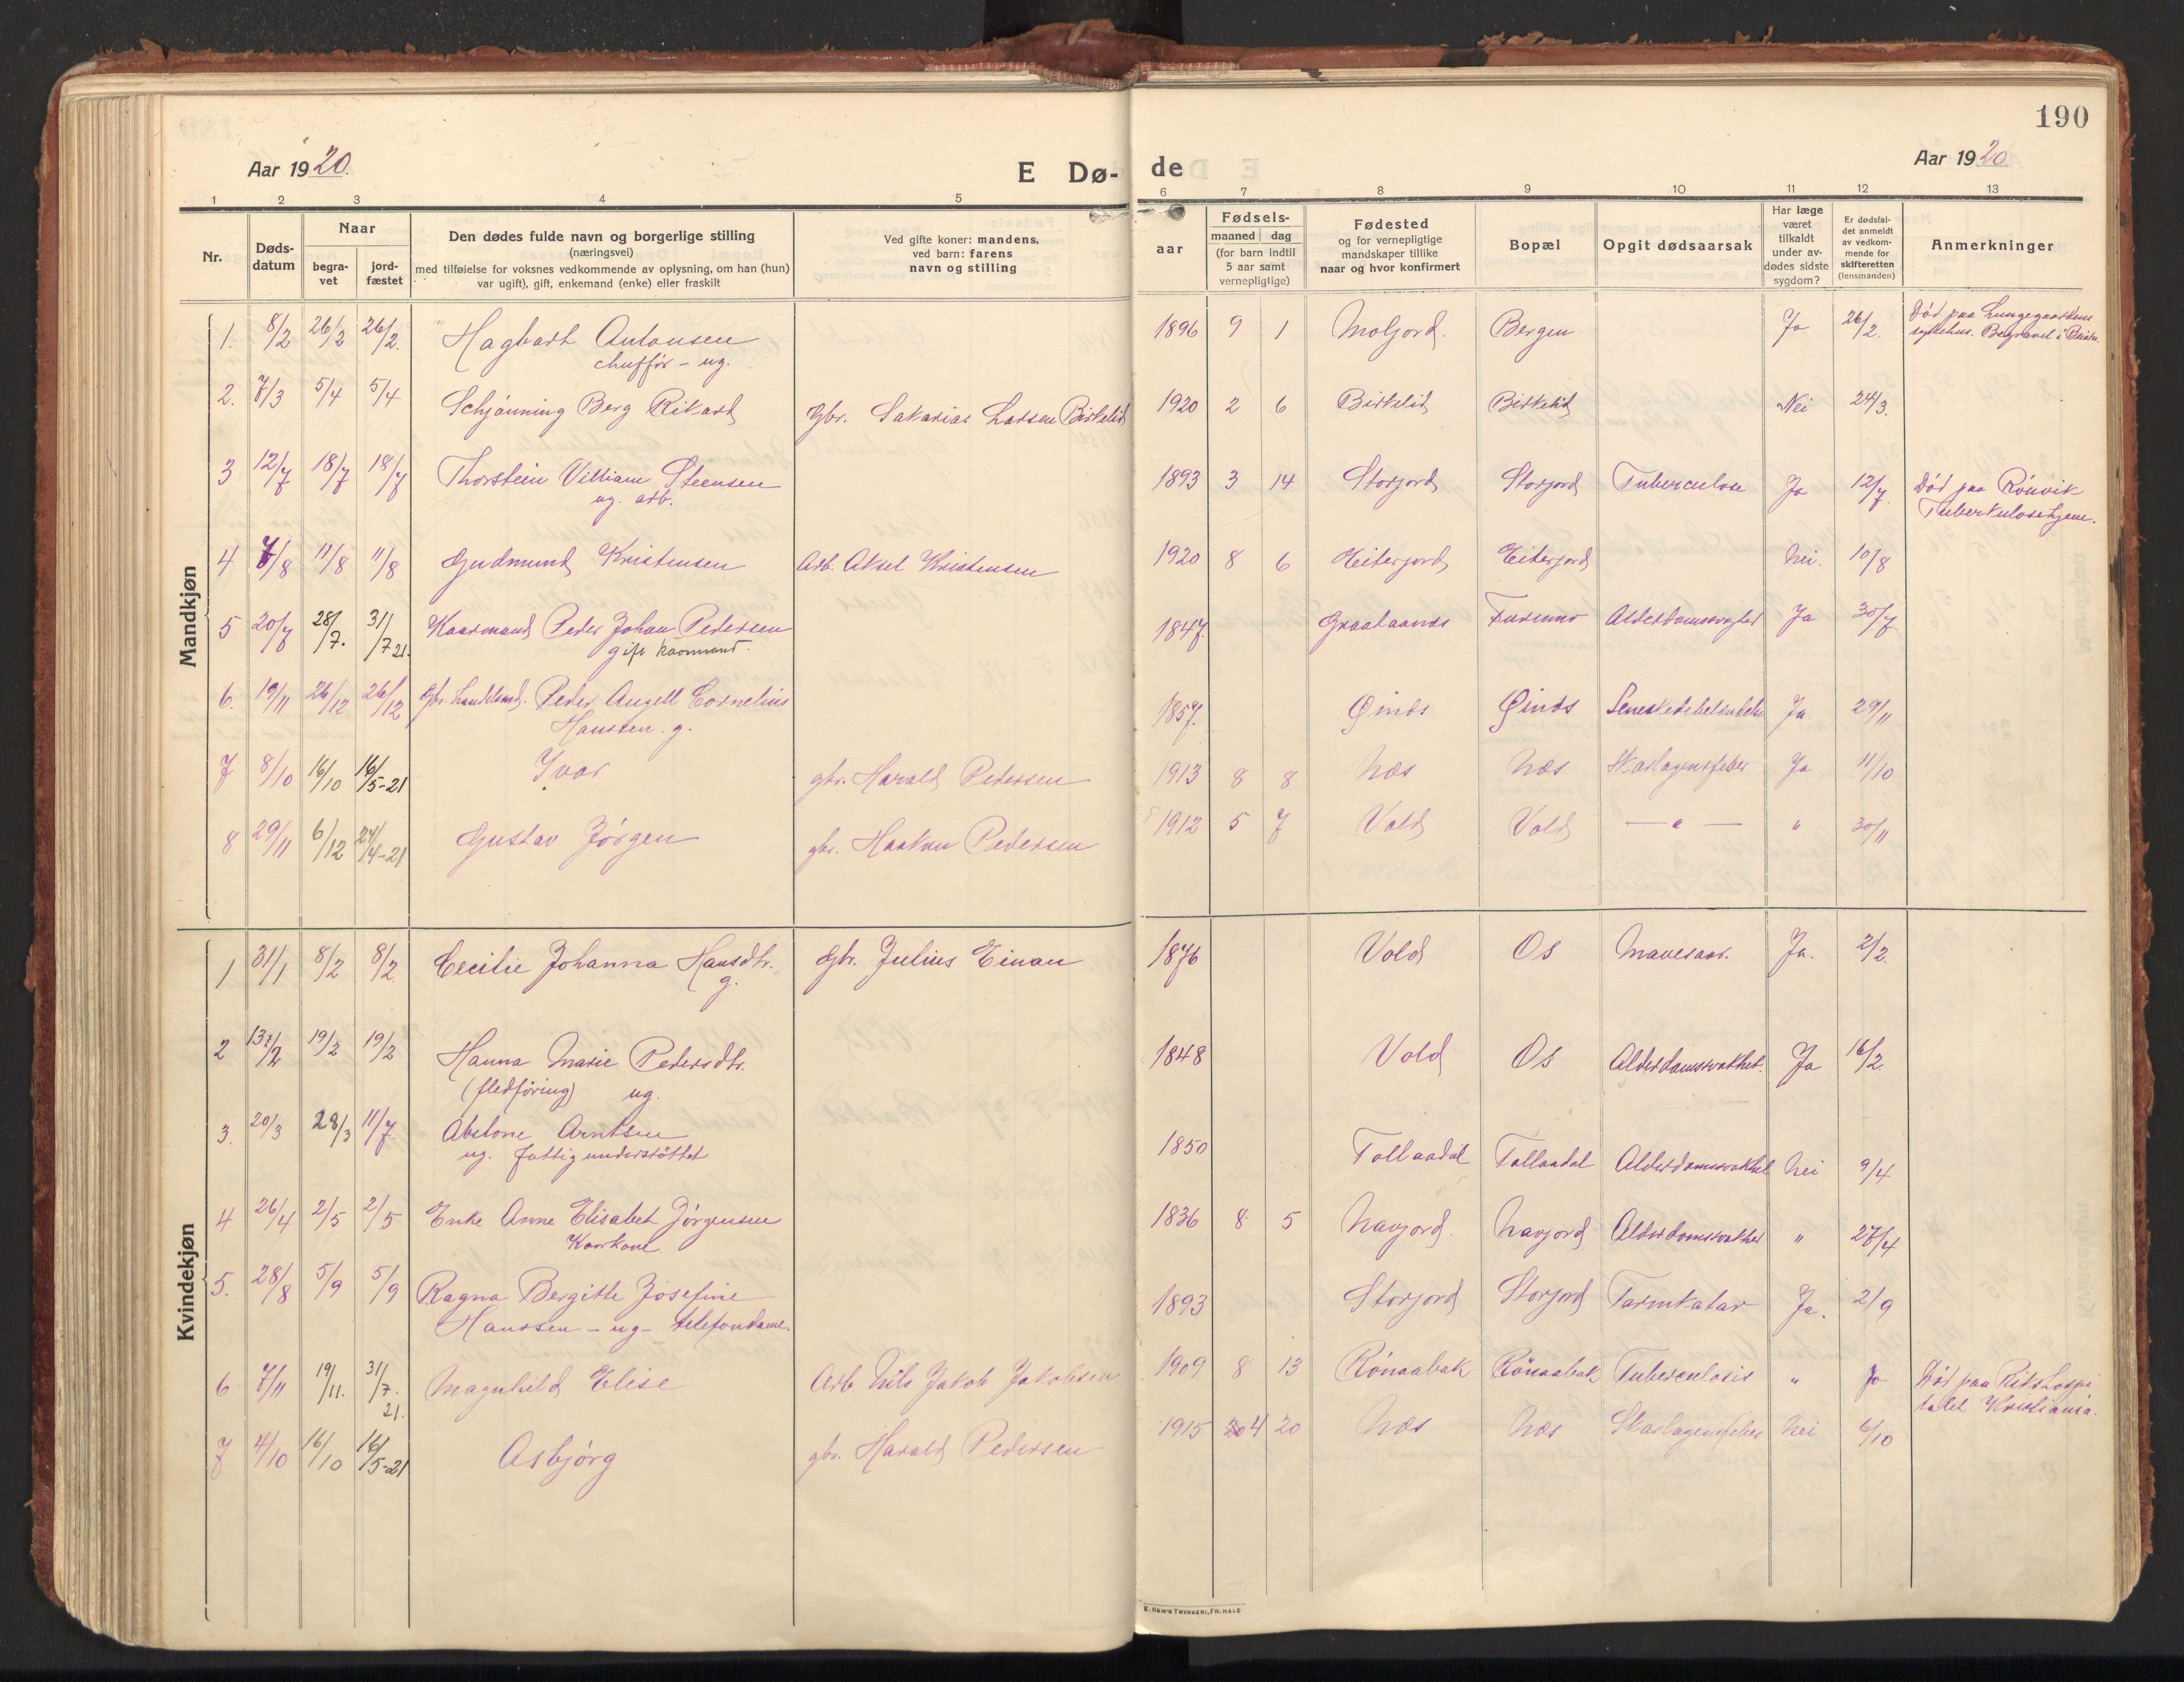 190
Aar 1920.
E Dø-
de
Aar 1920
1 2 3 4 5 6 7 8 9 10 11 12 13
Nr.
Døds-
datum
Naar
begra-
vet
jord-
fæstet
Den dødes fulde navn og borgerlige stilling
(næringsvei)
med tilføielse for voksnes vedkommende av oplysning, om han (hun)
var ugift), gift, enkemand (enke) eller fraskilt
Ved gifte koner: mandens,
ved barn: farens
navn og stilling
Fødsels-
aar
maaned dag
(for barn indtil
5 aar samt
vernepligtige)
Fødested
og for vernepligtige
mandskaper tillike
naar og hvor konfirmert
Bopæl
Opgit dødsaarsak
Har læge
været
tilkaldt
under av-
dødes sidste
sygdom?
Er dødsfal-
det anmeldt
av vedkom-
mende for
skifteretten
(lensmanden)
Anmerkninger
Mandkjøn
1. 8/2 26/2 26/2. Hagbart Antonsen 1896 9 1 Moljord. Bergen Ja 26/2. Død paa Lungegaardens
chuffør - ug. sykehus. Begravet i
2. 7/3 5/4 5/4 Schjønning Berg Rikard gbr. Sakarias Larsen Birkelid 1920 2 6 Birkelid Birkelid Nei 24/3.
3 12/7 18/7 18/7 Thorstein Villiam Steensen 1893 3 14 Storjord Storjord Tuberculose Ja 12/7. Død paa Rönvik
ug. arb. Tuberkulosehjem.
4 7/8 11/8 11/8 Gudmund Kristensen Arb. Aksel Kristensen 1920 8 6 Eiterjord Eiterjord Nei. 10/8
5 20/7 28/7. 31/7 21. Kaarmand Peder Johan Pedersen 1847. Graataanes Furumo Ja 30/7
gift kaarmand.
6. 19/11 26/12 26/12 Gbr. Peder Angell Cornelius 1857. Øinds Øinds Ja 29/11
Hanssen. g.
7 8/10 16/10 16/5-21 Ivar gbr. Harald Pedersen 1913 8 8 Næs Næs Skarlagensfeber Ja 11/10
8 29/11 6/12 24/4-21 Gustav Jørgen gbr. Haakon Pedersen 1912 5 7 Vold Vold — " — " 30/11
Kvindekjøn
1 31/1 8/2 8/2. Cecilie Johanna Hansdtr. gbr. Julius Einan 1876 Vold Os Mavesaar. Ja. 2/2.
g.
2 13/2 19/2 19/2 Hanna Marie Pedersdtr. 1848 Vold Os Alderdomssvakhet. Ja 16/2.
(fledføring) ug.
3. 20/3 28/3 11/7 Abelone Arntsen 1850 Tollaadal Tollaadal Alderdomssvakhet Nei 9/4
ug. fattigunderstöttet
4 26/4 2/5 2/5 Enke Anne Elisabet Jörgensen 1836 8 5 Navjord. Navjord Alderdomssvakhet " 27/4
Kaarkone
5. 28/8 5/9 5/9 Ragna Bergitte Josefine 1893 Storjord Storjord Tarmkatar Ja. 2/9
Hanssen - ug - telefondame.
6 7/11 19/11. 31/7. 21. Magnhild Elise Arb. Nils Jakob Jakobsen 1909 8 13 Rönaabak Rönaabak Tuberculosis " Ja Död paa Rikshospi
talet Kristiania.
7 4/10 16/10 16/5-21 Asbjørg gbr. Harald Pedersen 1915 4 20 Næs Næs Skarlagensfeber Nei 6/10
E. SEM'S TRYKKERI, FR.HALD